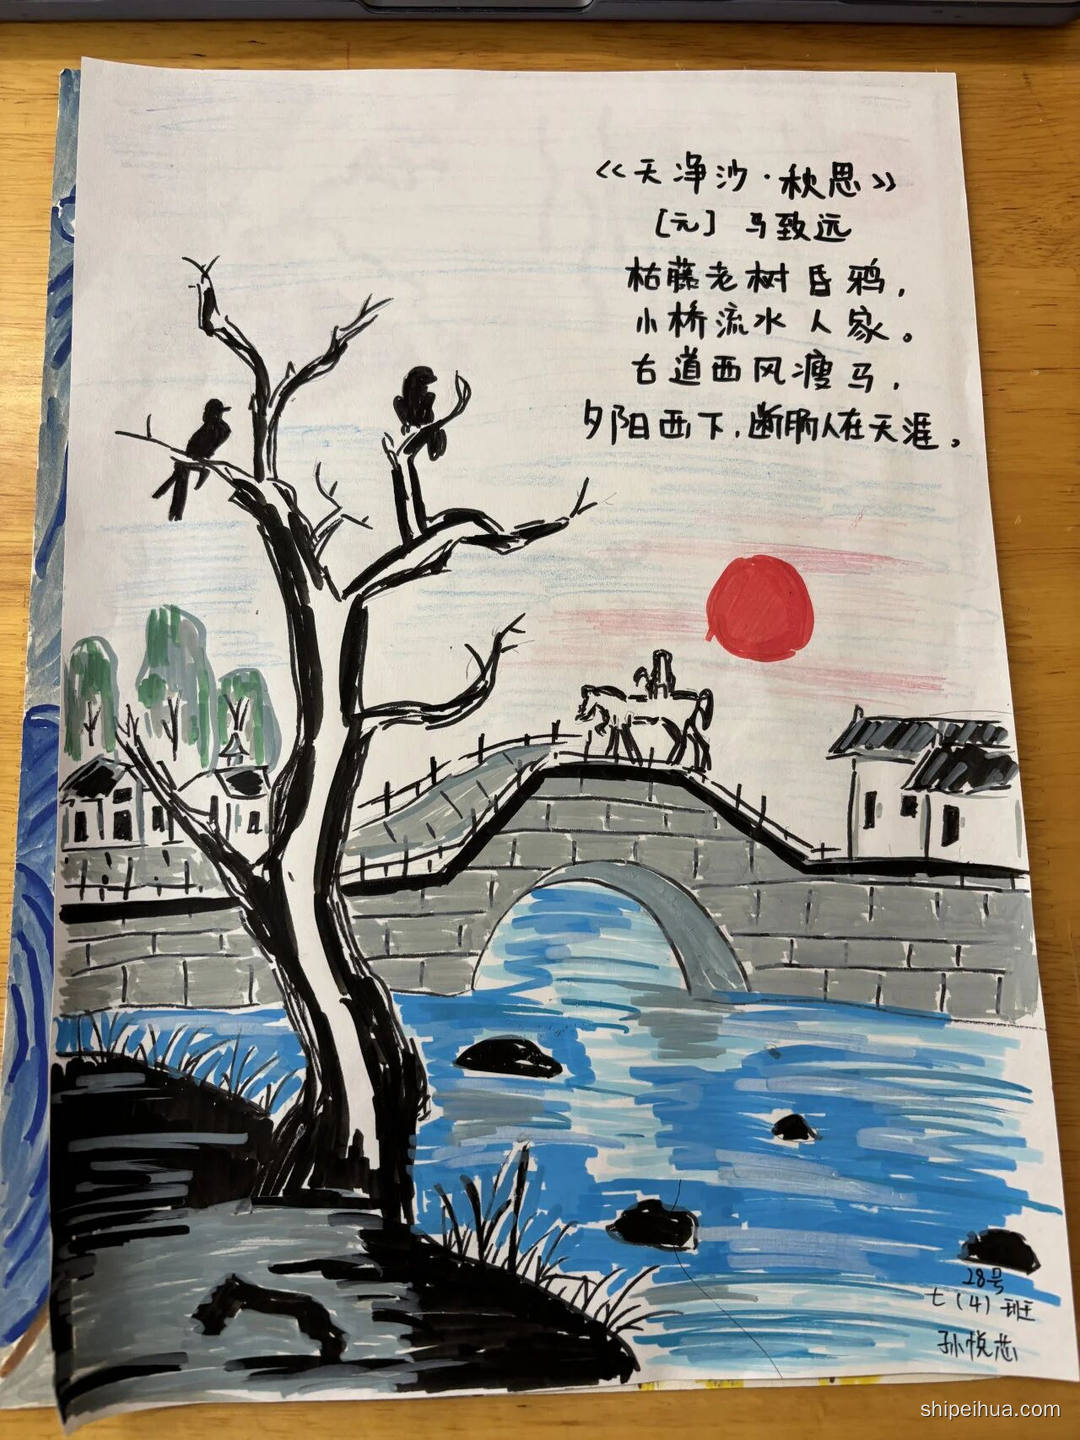 《天净沙·秋思》
[元] 马致远
枯藤老树昏鸦,
小桥流水人家。
古道西风瘦马,
夕阳西下,断肠人在天涯。
28号
七(4)班
孙悦芯
shipeihua.com